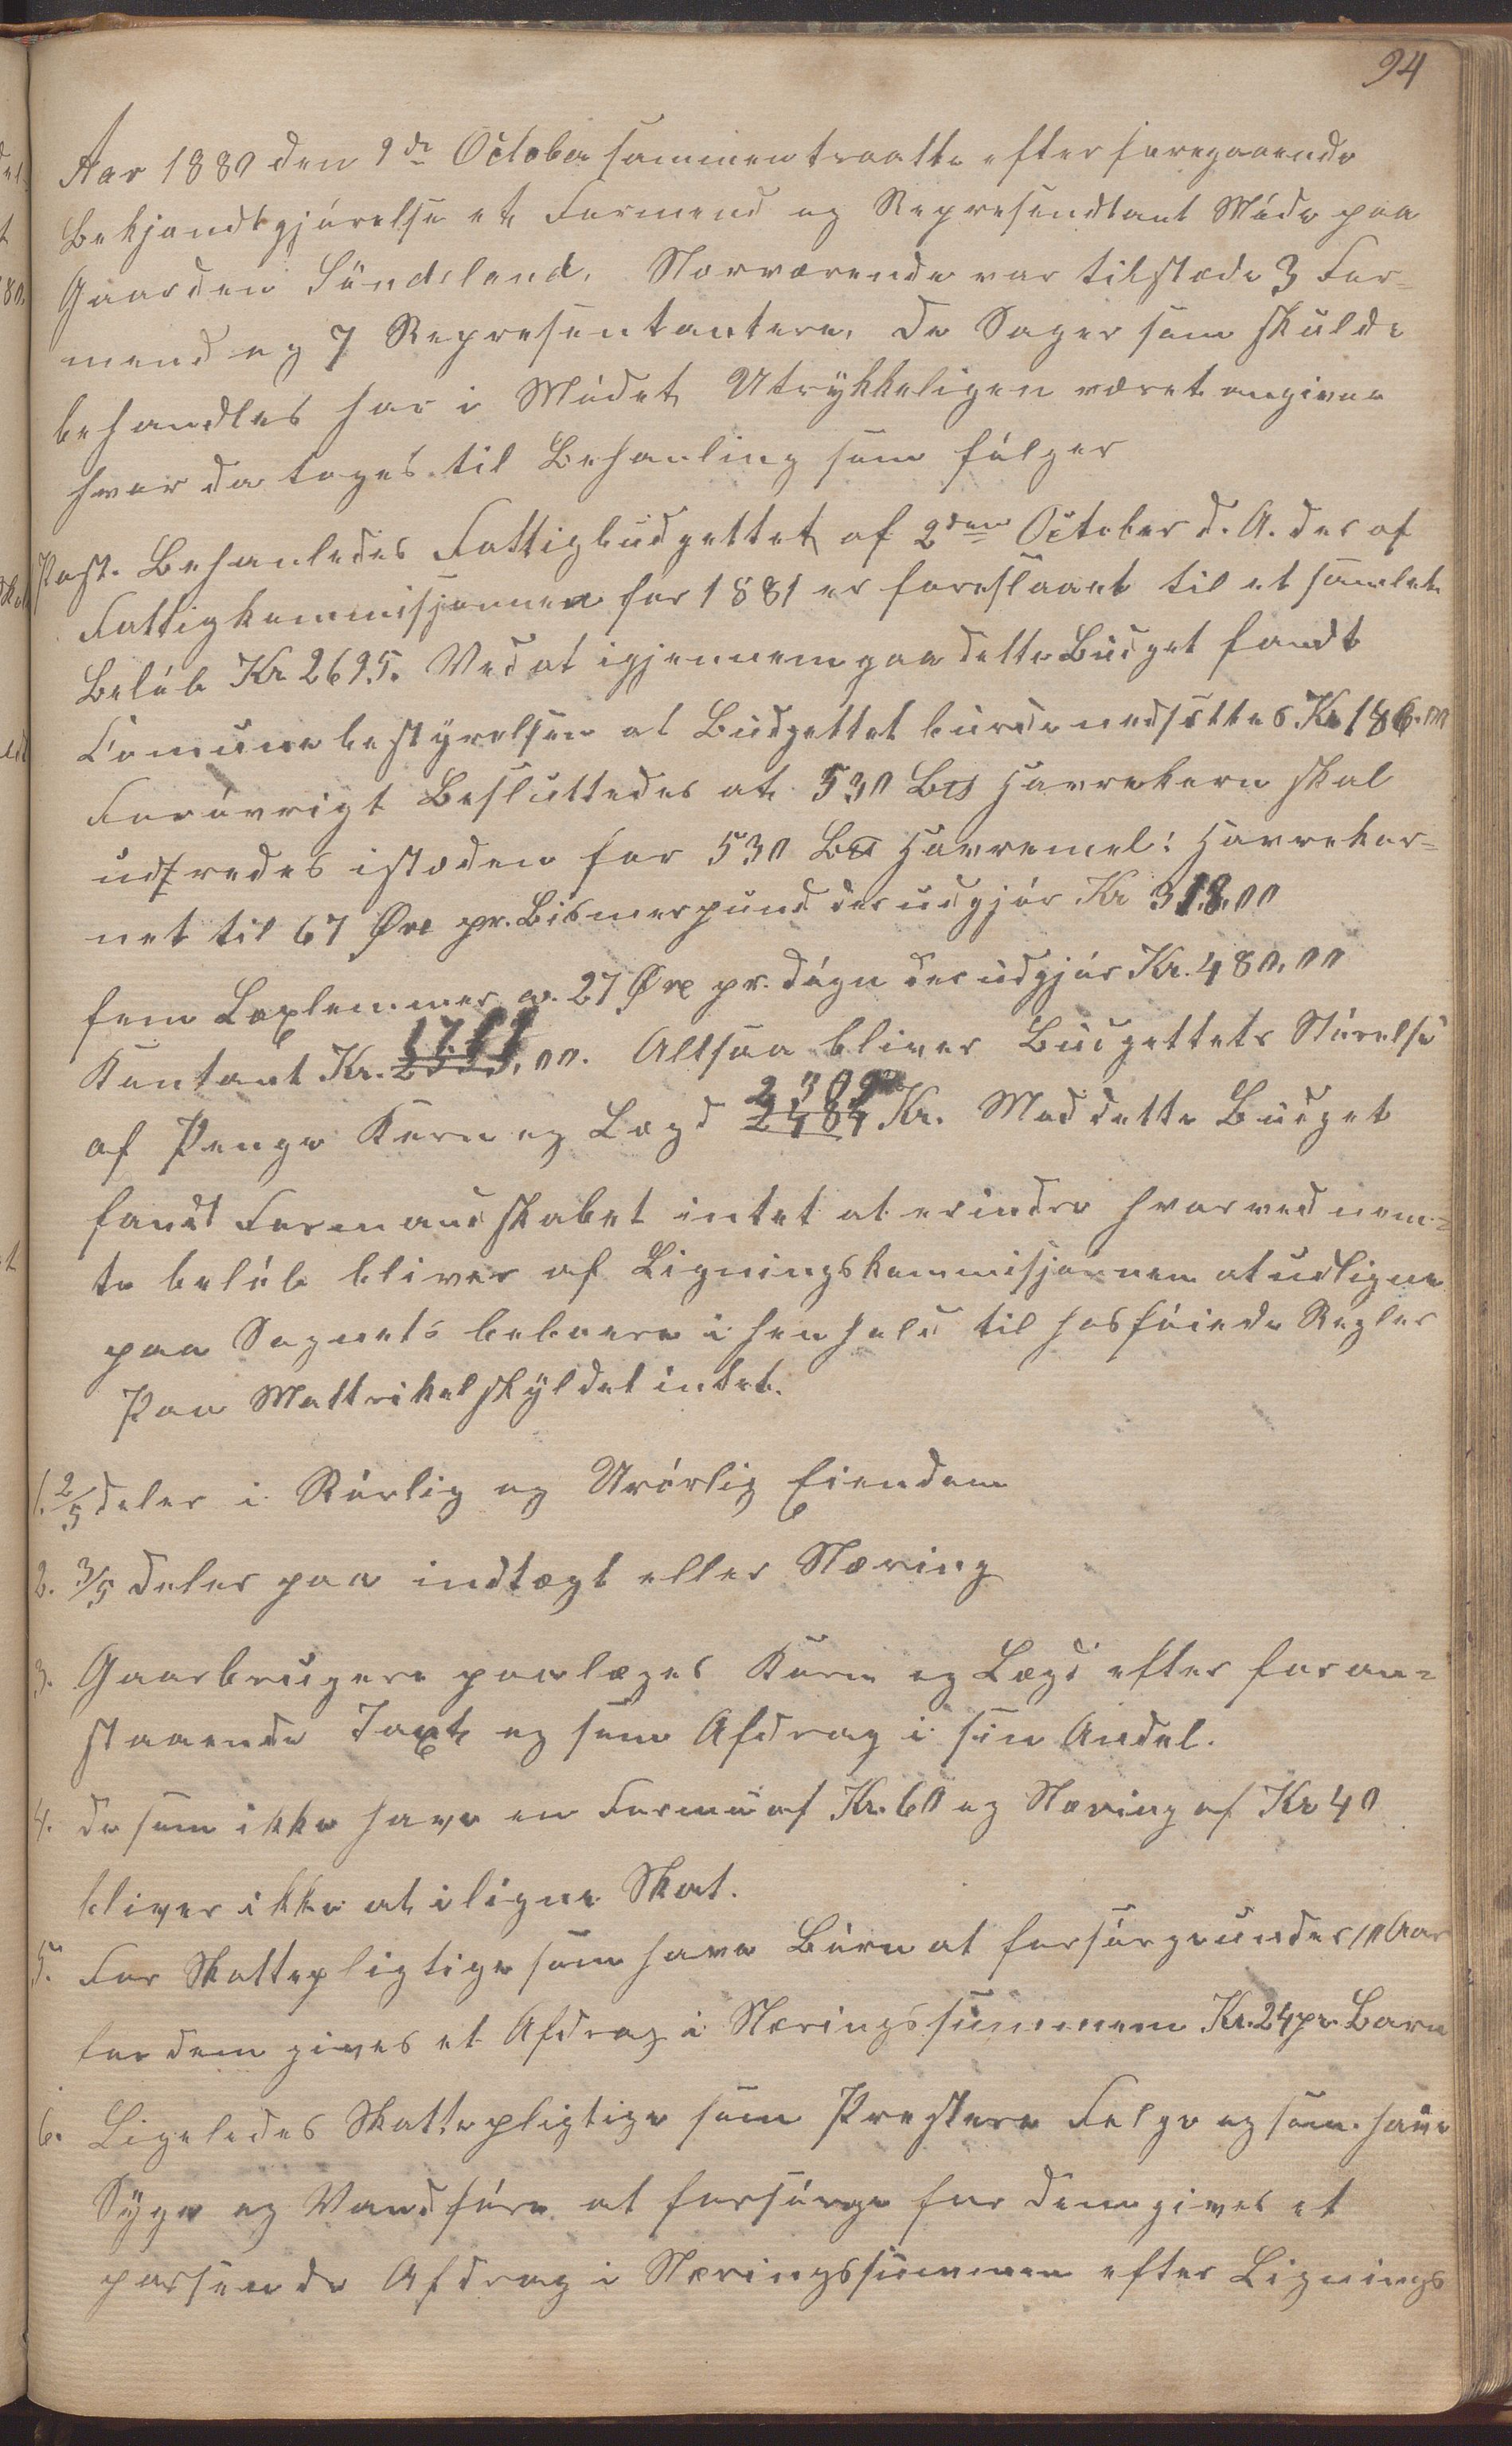 94
Aar 1880 den 9de October sammentraatte efter foregaaende
Bekjendtgjørelse et Formend og Represendtant Møde paa
Gaarden Søndeland. Nærværende var tilstæde 3 For=
mend og 7 Representantere, de Sager som skulde
behandles har i Mødet Utrykkeligen været angivne
hvor da toges til Behanling som følger
Post. Behanledes Fattigbudgettet af 2den October d. A. der af
Fattigkommisjonnen for 1881 er foreslaaet til et samlet
Beløb Kr 2695. Ved at igjennemgaa dette Budget fandt
Comunebestyrelsen at Budgettet burde nedsettes Kr 186.00
Forøvrigt Besluttedes at 530 B℔ Havrekorn skal
udredes istæden for 530 B℔ Havremel: Havrekor=
net til 67 Øre pr. Bismerpund der udgjør Kr 318.00
fem Læxlemmer a. 27 Øre pr. døgn der udgjør Kr. 480,00
Kontant Kr. ,00. Altsaa bliver Budgettets Størelse
af Penge Korn og Lægd 2309 2484 Kr. Med dette Budget
fandt Formandskabet intet at erindre hvorved nem=
te beløb bliver af Ligningskommisjonnen at udligne
paa Sognets beboere i henhold til hosføiede Regler
Paa Mattrikelskyldet intet.
1. 2/5 deler i Rørlig og Urørlig Eiendom
2. 3/5 deler paa indtægt eller Næring
3. Gaarbrugere paalæges Korn og Lægd efter foran=
staaende Taxt og som Afdrag i sin Andel.
4. de som ikke have en Formue af Kr. 60 og Næring af Kr 40
bliver ikke at iligne Skat.
5. For Skattepligtige som have Børn at forsørge under 10 Aar
for dem gives et Afdrag i Næringssummem Kr. 24 pr. Barn
6. Ligeledes Skattepligtige som Prestere Følge og som have
Syge og Vandføre at forsørge for dem gives et
passende Afdrag i Næringssummen efter Lignings